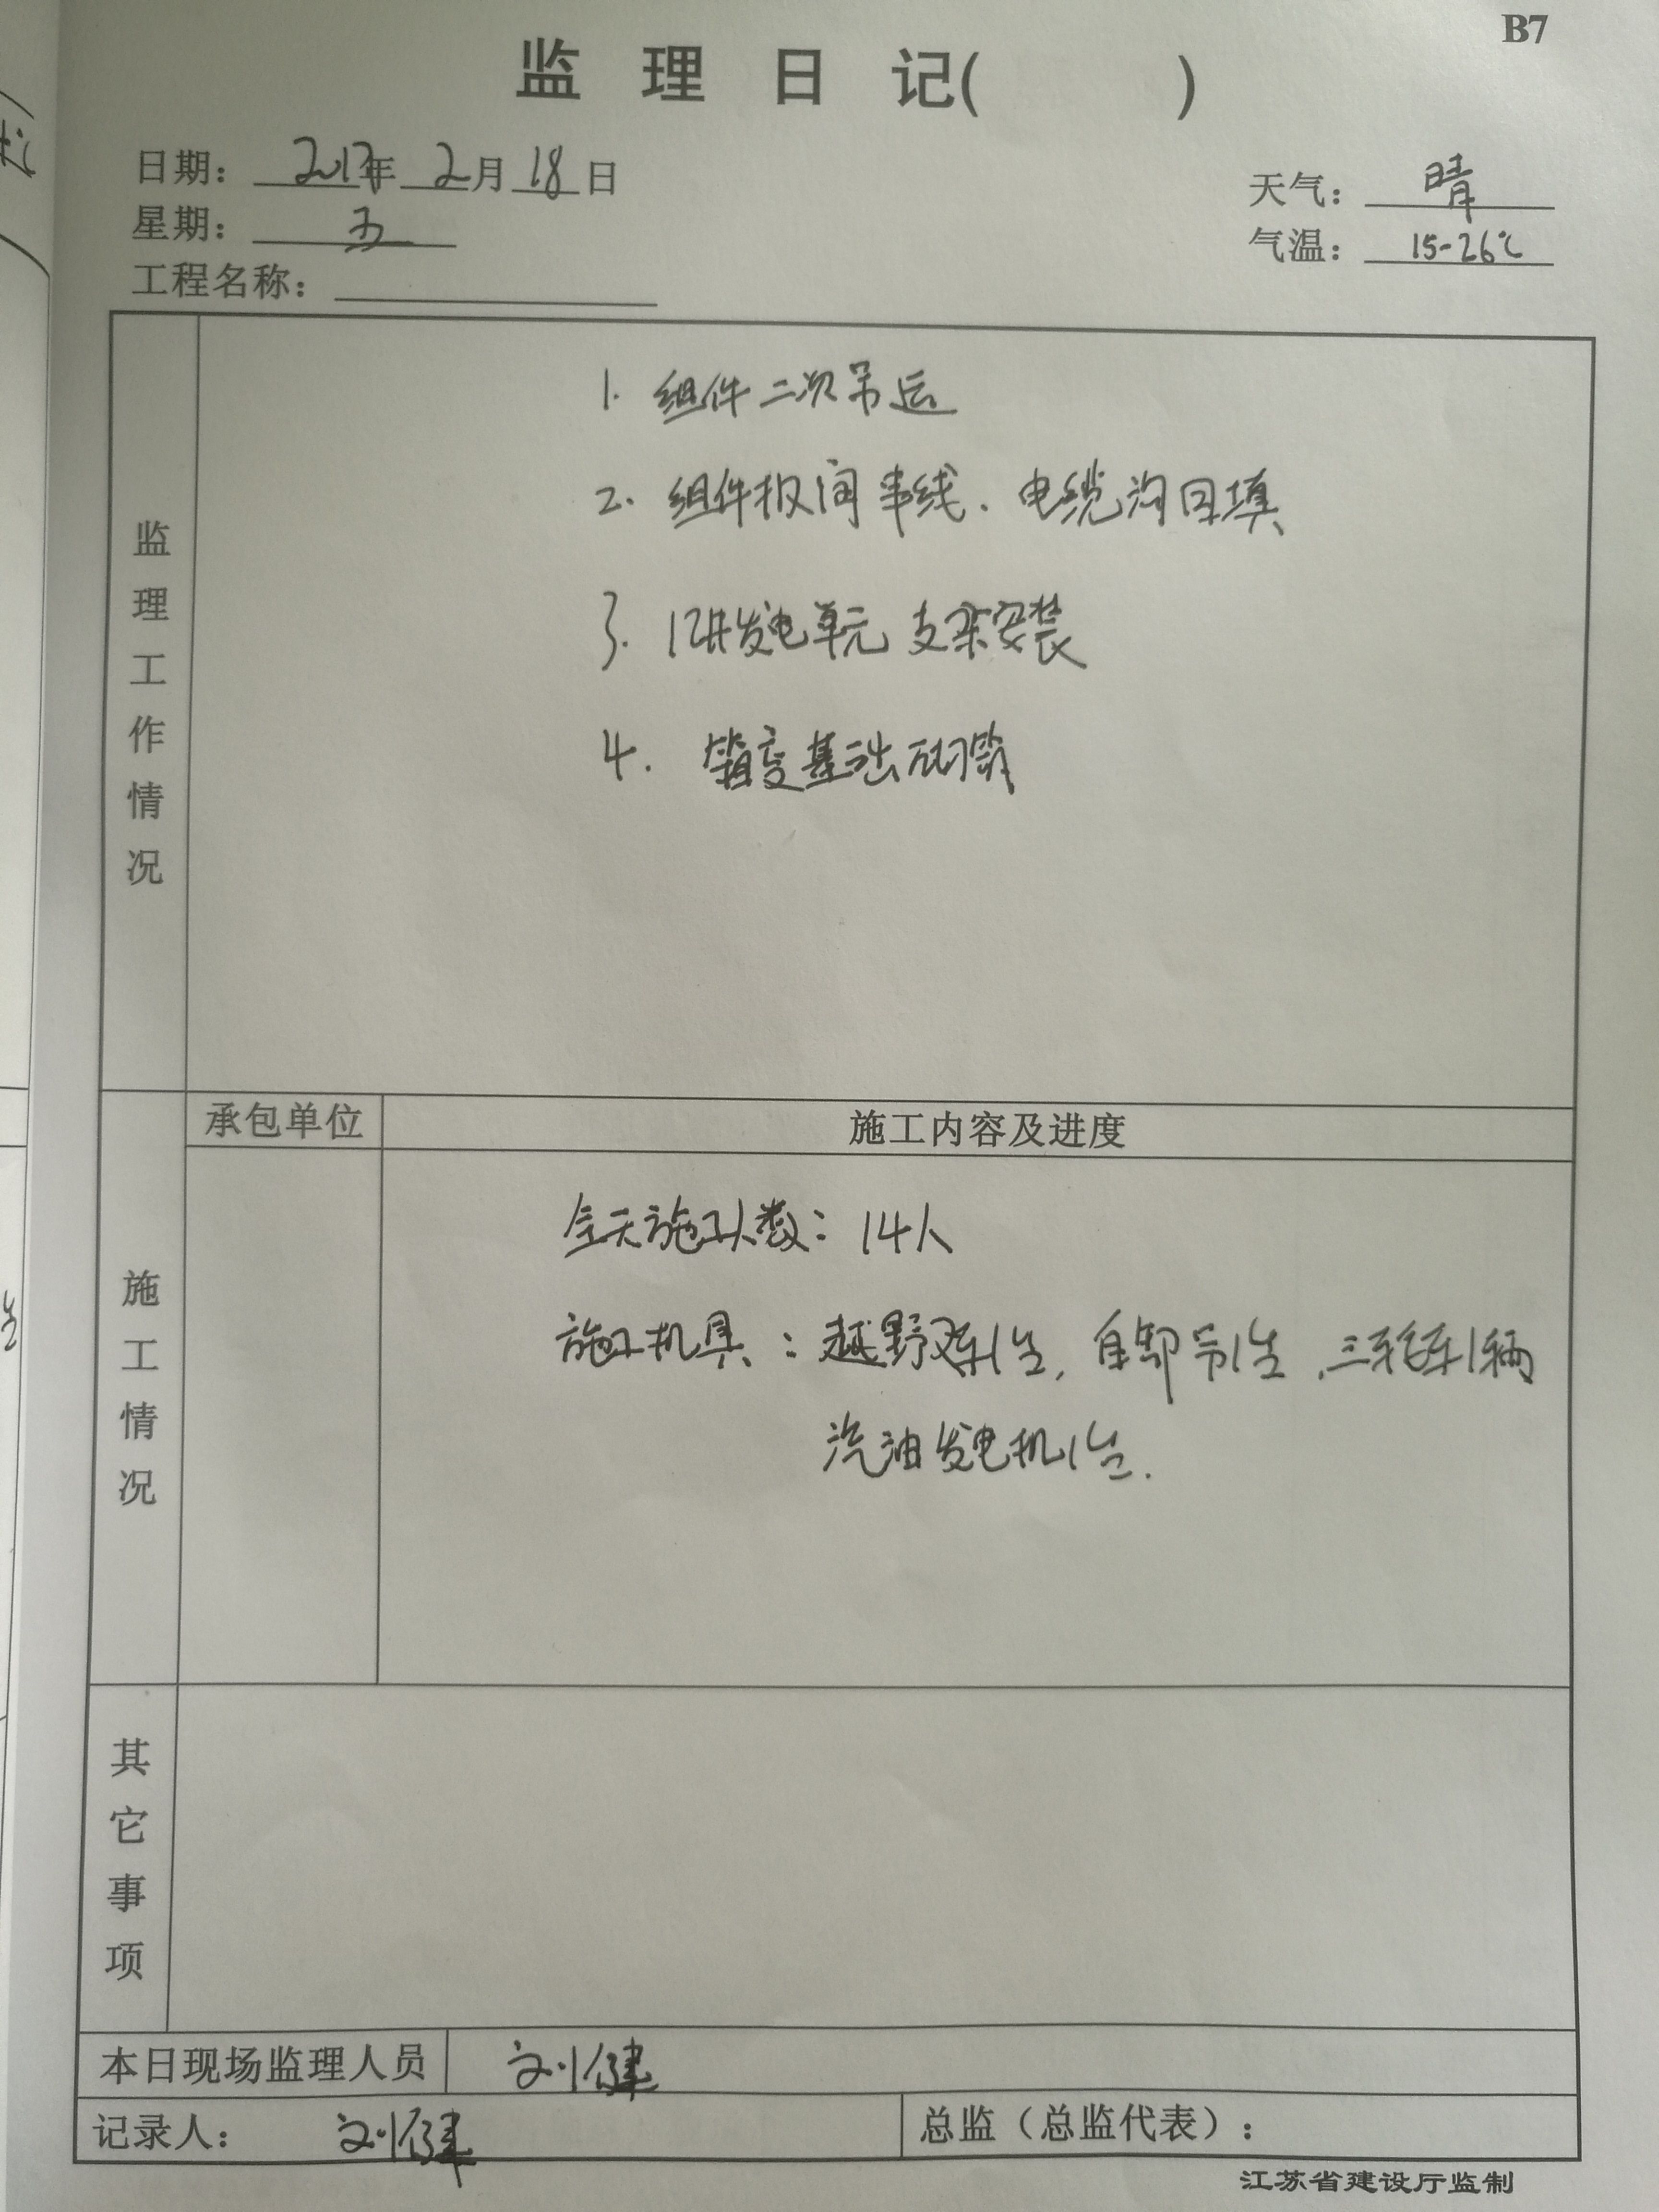 B7
监 理 日 记( )
日期: 2017年 2月 18日
天气: 晴
星期: 五
气温: 15-26℃
工程名称:
监理工作情况
1. 组件二次吊运
2. 组件板间串线、电缆沟回填
3. 12#发电单元支架安装
4. 箱变基础砌筑
承包单位
施工内容及进度
施工情况
今天施工人数: 14人
施工机具: 越野车1台, 自卸吊1台, 三轮车1辆
汽油发电机1台.
其它事项
本日现场监理人员 刘健
记录人: 刘健
总监（总监代表）:
江苏省建设厅监制